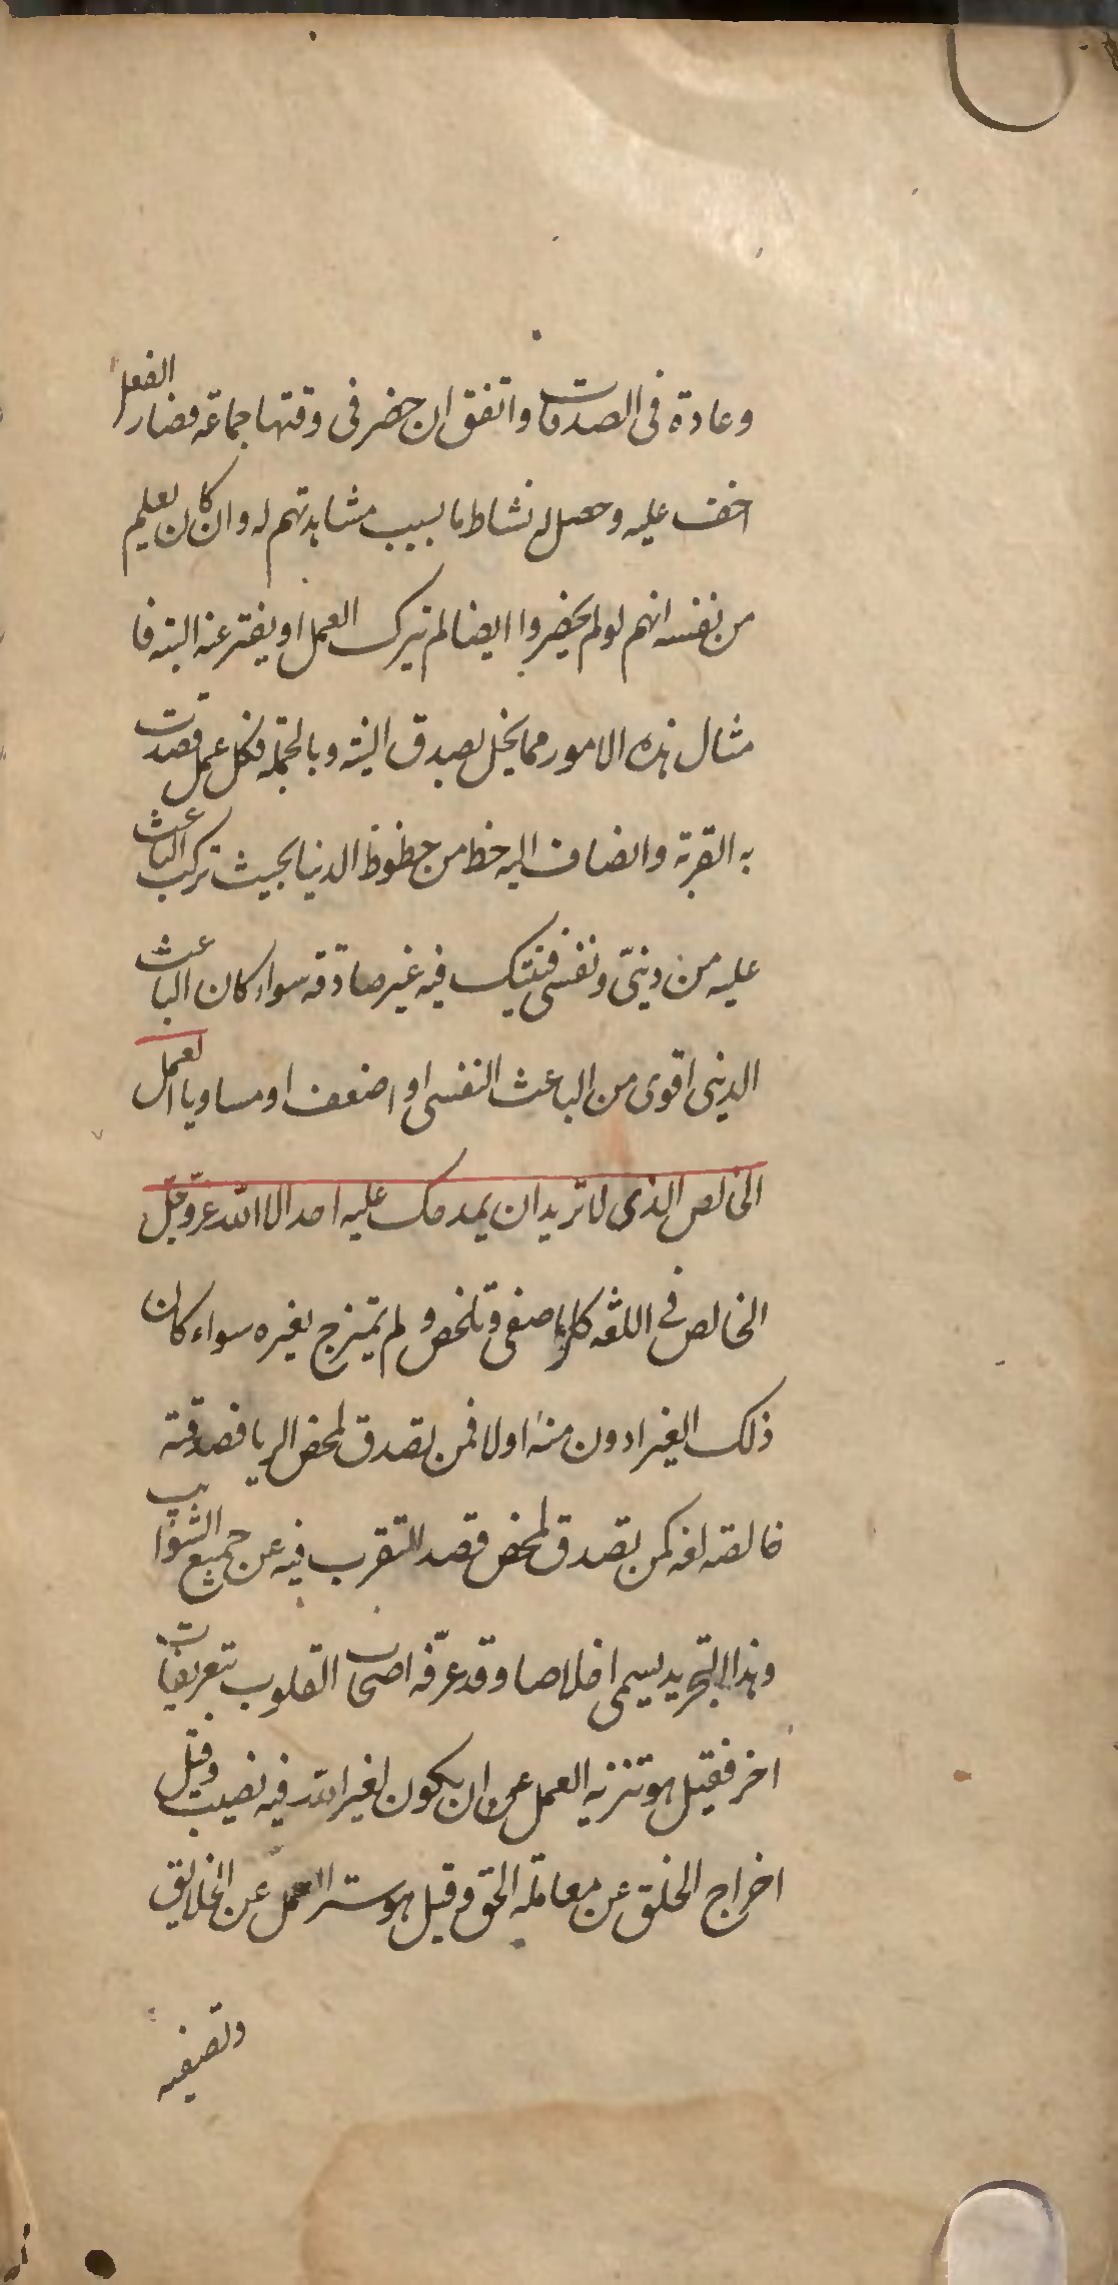 وعادة فى الصدقات واتفق ان حضر فى وقتها جماعة فصار الفعل
اخف عليه وحصل له نشاط ما بسبب مشاهدتهم له وان كان يعلم
من نفسه انهم لو لم يحضروا ايضا لم يترك العمل او يفتر عنه البتة فا
مثال هذه الامور مما يخل بصدق النية وبالجملة فكل عمل قصدت
به القربة وانضاف اليه حظ من حظوظ الدنيا بحيث تركب الباعث
عليه من دينى ونفسى فنيتك فيه غير صادقة سواء كان الباعث
الدينى اقوى من الباعث النفسى او اضعف او مساويا العمل
الخالص الذى لا تريد ان يمدحك عليه احد الا الله عز وجل
الخالص فى اللغة كلما صفى وتلخص ولم يمتزج بغيره سواء كان
ذلك الغير ادون منه اولا فمن تصدق لمحض الريا فصدقته
خالصة لغة كمن تصدق لمحض قصد التقرب فيه عن جميع الشوائب
وهذا التجريد يسمى اخلاصا وقد عرّفه اصحاب القلوب بتعريفات
اخر فقيل هو تنزيه العمل عن ان يكون لغير الله فيه نصيب وقيل
اخراج الخلق عن معاملة الحق وقيل هو ستر العمل عن الخلائق
وتصفيه